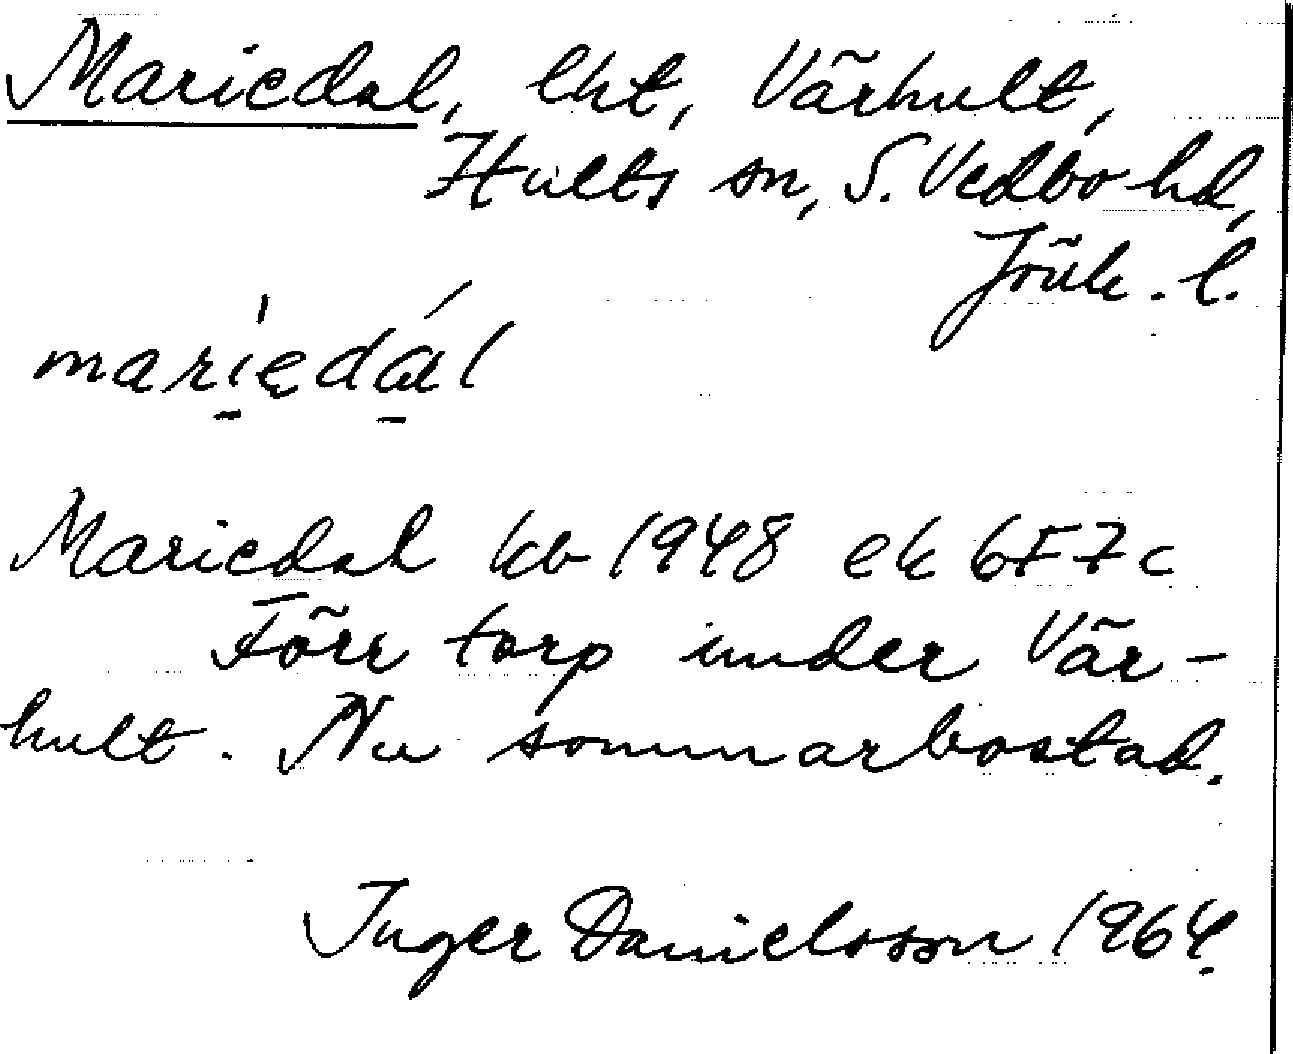 Mariedal, lht, Värhult,
Hults sn, S. Vedbo hd,
Jönk. l.
mariedal
Mariedal kb 1948 ek 6F7c
Förr torp under Vär-
hult. Nu sommarbostad.
Inger Danielsson 1964.